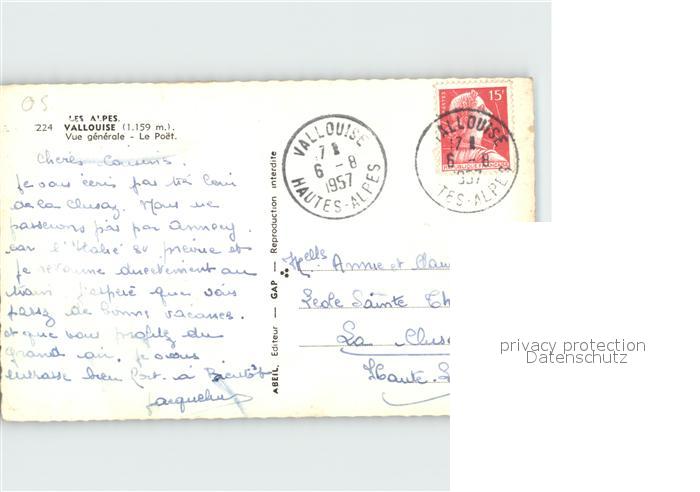 OS
LES ALPES.
224 VALLOUISE (1.159 m.).
Vue générale - Le Poët.
VALLOUISE
17 H
6 - 8
1957
HAUTES-ALPES
POSTES 15F
VALLOUISE
17 H
6 - 8
1957
TES-ALPES
ABEIL, Editeur — GAP — Reproduction interdite
Chères
Je vous écris pas très loin
de la Clusaz. Nous ne
passerons pas par Annecy.
car l'Italie se
je retourne directement au
J'espère que vous
passez de bonnes vacances.
et que vous profitez du
grand air. Je vous
embrasse bien fort. à Bientôt
Jacqueline
Melles Annie et
Ecole Sainte Th
La Clusa
Haute-S
privacy protection
Datenschutz